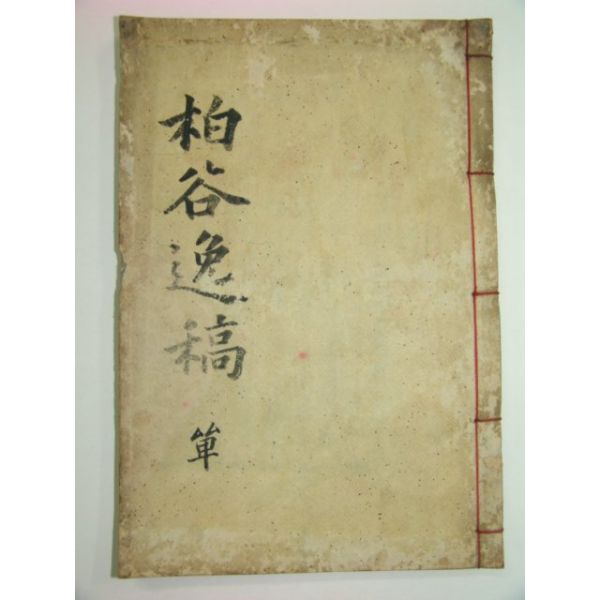 柏谷逸稿
單